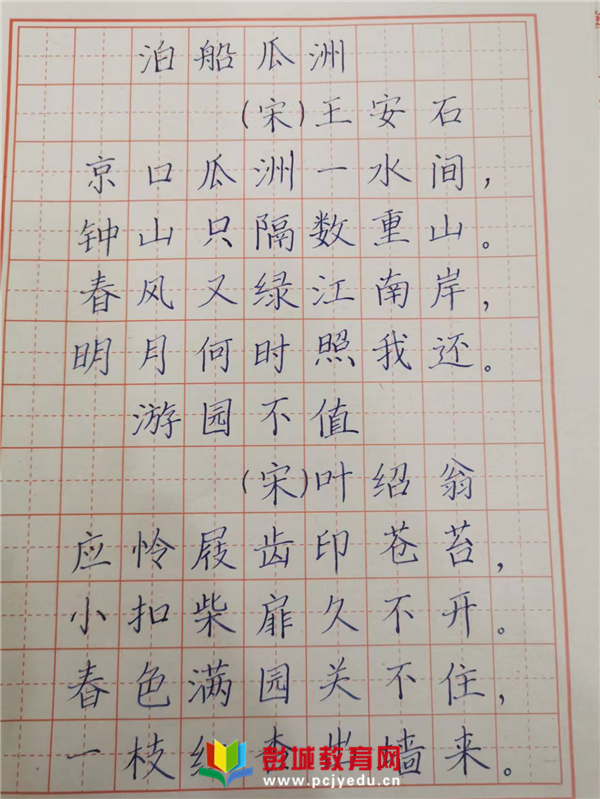 泊船瓜洲
(宋)王安石
京口瓜洲一水间,
钟山只隔数重山。
春风又绿江南岸,
明月何时照我还。
游园不值
(宋)叶绍翁
应怜屐齿印苍苔,
小扣柴扉久不开。
春色满园关不住,
一枝红杏出墙来。
彭城教育网
www.pcjyedu.cn